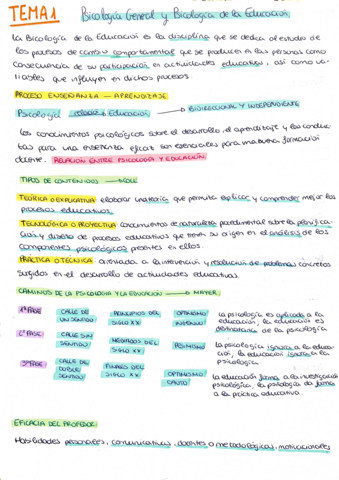 TEMA 1 Psicología General y Psicología de la Educación
La Psicología de la Educación es la disciplina que se dedica al estudio de
los procesos de cambio comportamental que se producen en las personas como
consecuencia de su participación en actividades educativas, así como va-
riables que influyen en dichos procesos.
PROCESO ENSEÑANZA - APRENDIZAJE
Psicología relación Educación → BIDIRECCIONAL Y INDEPENDIENTE
Los conocimientos psicológicos sobre el desarrollo, el aprendizaje y las conduc-
tas para una enseñanza eficaz son esenciales para una buena formación
docente. RELACIÓN ENTRE PSICOLOGÍA Y EDUCACIÓN.
TIPOS DE CONTENIDOS → COLL
TEÓRICA O EXPLICATIVA elaborar materia que permita explicar y comprender mejor los
procesos educativos.
TECNOLÓGICA O PROYECTIVA conocimientos de naturaleza procedimental sobre la planifica-
ción y diseño de procesos educativos que tienen su origen en el análisis de los
componentes psicológicos presentes en ellos.
PRÁCTICA O TÉCNICA orientada a la intervención y resolución de problemas concretos
surgidos en el desarrollo de actividades educativas.
CAMINOS DE LA PSICOLOGÍA Y LA EDUCACIÓN → MAYER
1ª FASE CALLE DE UN SENTIDO PRINCIPIOS DEL SIGLO XX OPTIMISMO INTENSO La psicología es aplicada a la
educación, la educación es
destinataria de la psicología
2ª FASE CALLE SIN SENTIDO MEDIADOS DEL SIGLO XX PESIMISMO La psicología ignora a la educa-
ción, la educación ignora a la
psicología.
3ª FASE CALLE DE DOBLE SENTIDO FINALES DEL SIGLO XX OPTIMISMO CAUTO La educación forma a la investigación
psicológica, la psicología da forma
a la práctica educativa.
EFICACIA DEL PROFESOR
Habilidades personales, comunicativas, docentes o metodológicas, motivacionales